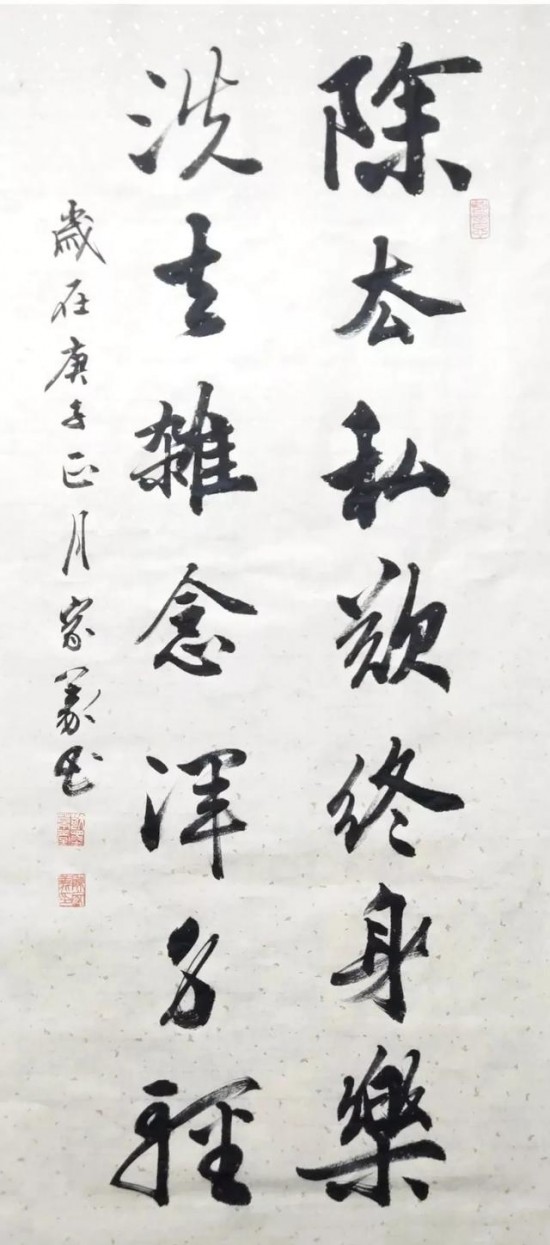 除去私欲終身樂
洗去雜念渾身輕
歲在庚子正月家義書